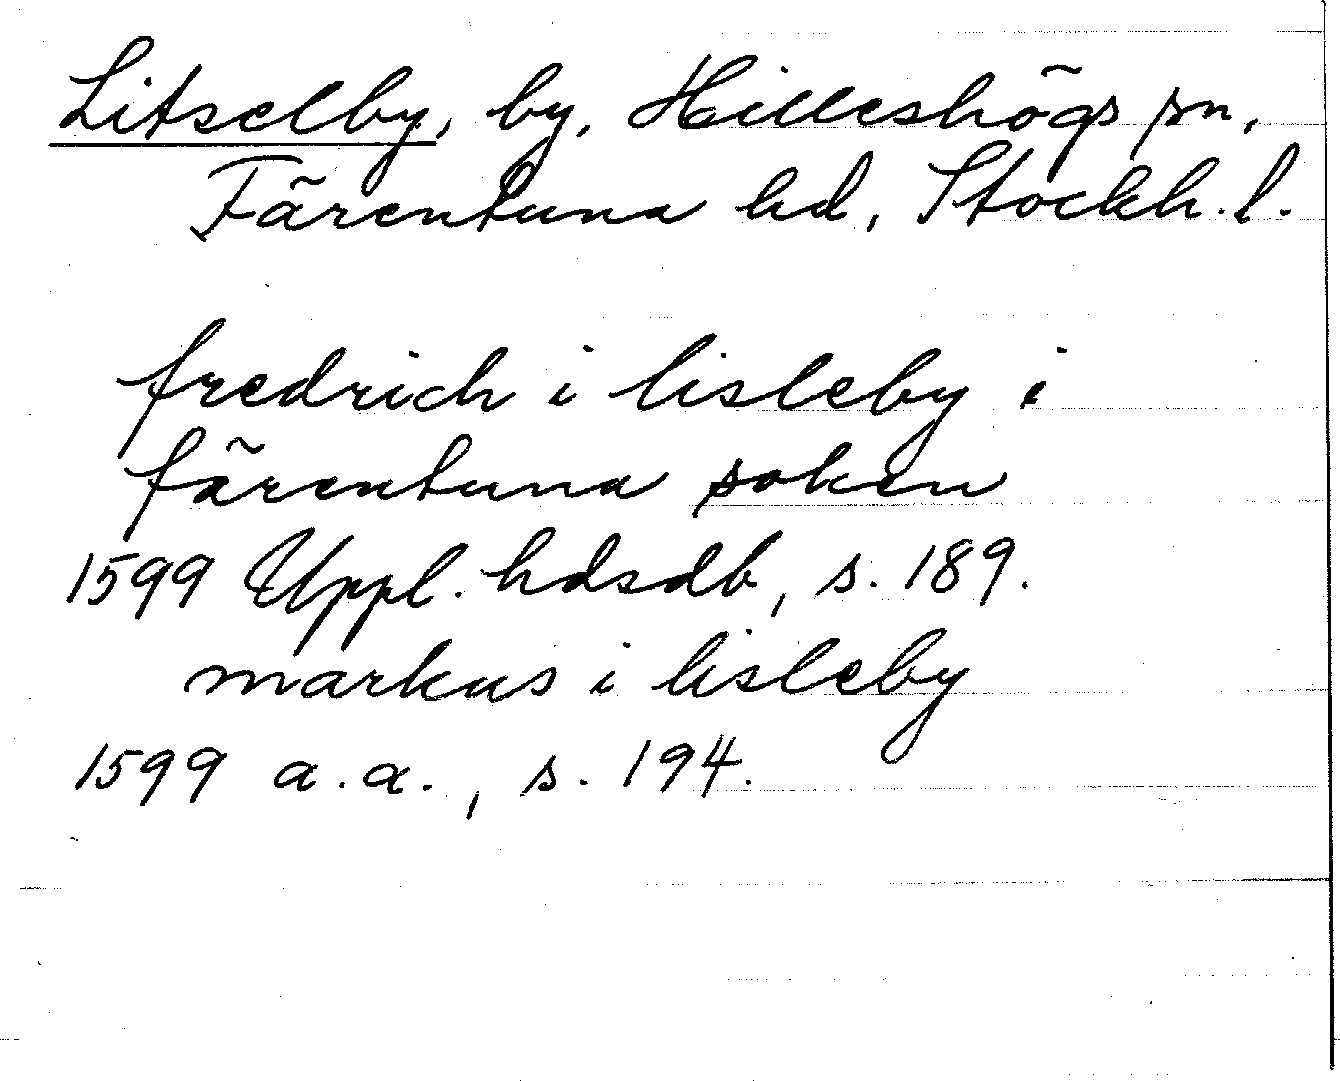 Litselby, by, Hilleshögs sn,
Färentuna hd, Stockh. l.
fredrich i lisleby i
färentuna soken
1599 Uppl. hdsdb, s. 189.
markus i lisleby
1599 a. a., s. 194.